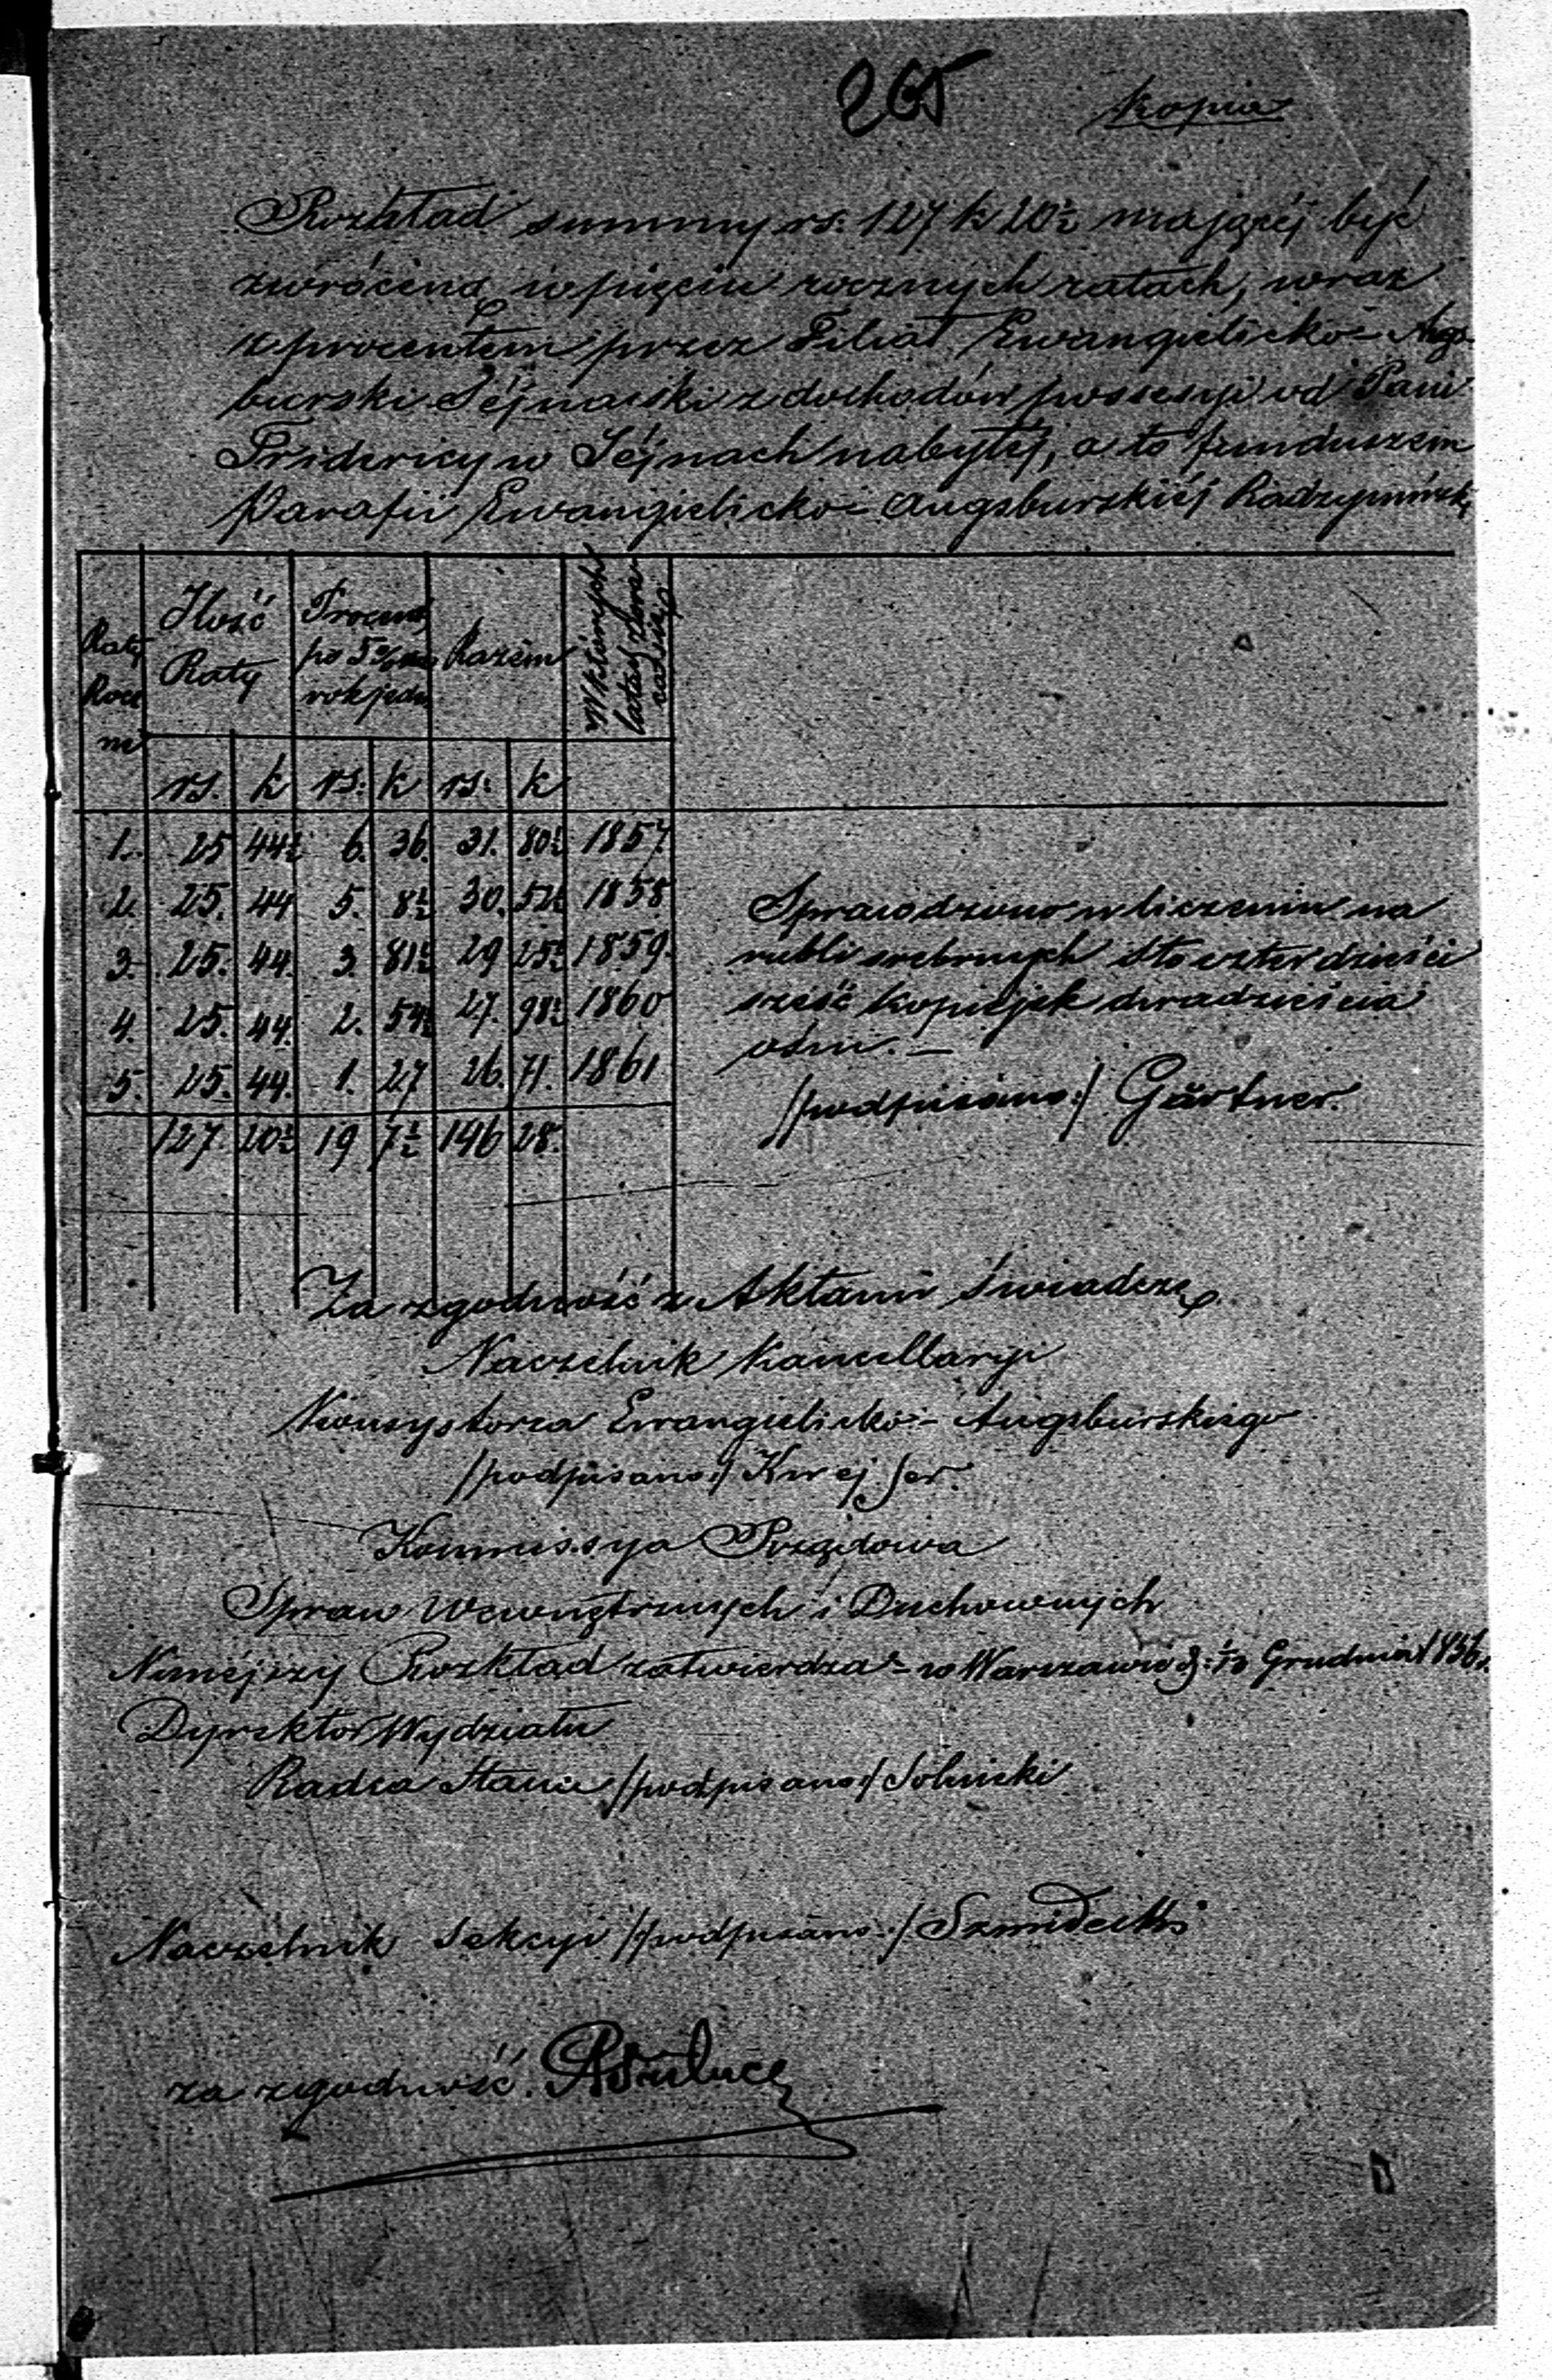 265
Kopia
Rozkład summy rs: 127 k 20½ mającéj być
zwróconą w pięciu rocznych ratach, wraz
z procentem przez Filiał Ewangielicko- Augs-
burski Séjnaeński z dochodów possesyi od Pani
Fridericy w Séjnach nabytéj, a to funduszem
Parafii Ewangielicko- Augsburskiéj Radzymińskiéj
Raty Rocz ne | Ilość Raty | Procent po 5% na rok jeden | Razém | W których latach
rs. | k | rs: | k | rs: | k
1. 25 44½ 6. 36. 31. 80½ 1857
2. 25. 44 5. 8½ 30. 52½ 1858
3. 25. 44. 3. 81½ 29 25½ 1859.
4. 25. 44. 2. 54½ 27. 98½ 1860
5. 25. 44. 1. 27 26. 71. 1861
127. 20½ 19 7½ 146 28.
Sprawdzono w liczeniu na
rubli srebrnych sto czterdzieści
sześć kopiejek dwadzieścia
ośm. –
/podpisano:/ Gärtner.
Za zgodność z Aktami świadczę
Naczelnik Kancellaryi
Konsystorza Ewangielicko- Augsburskiego
/podpisano:/ Kwejser.
Kommissya Rządowa
Spraw Wewnętrznych i Duchownych
Niniéjszy Rozkład zatwierdza – w Warszawie d: Grudnia 1856 r.
Dyrektor Wydziału
Radca Stanu /podpisano:/ Solnicki
Naczelnik Sekcyi /podpisano:/
za zgodność.